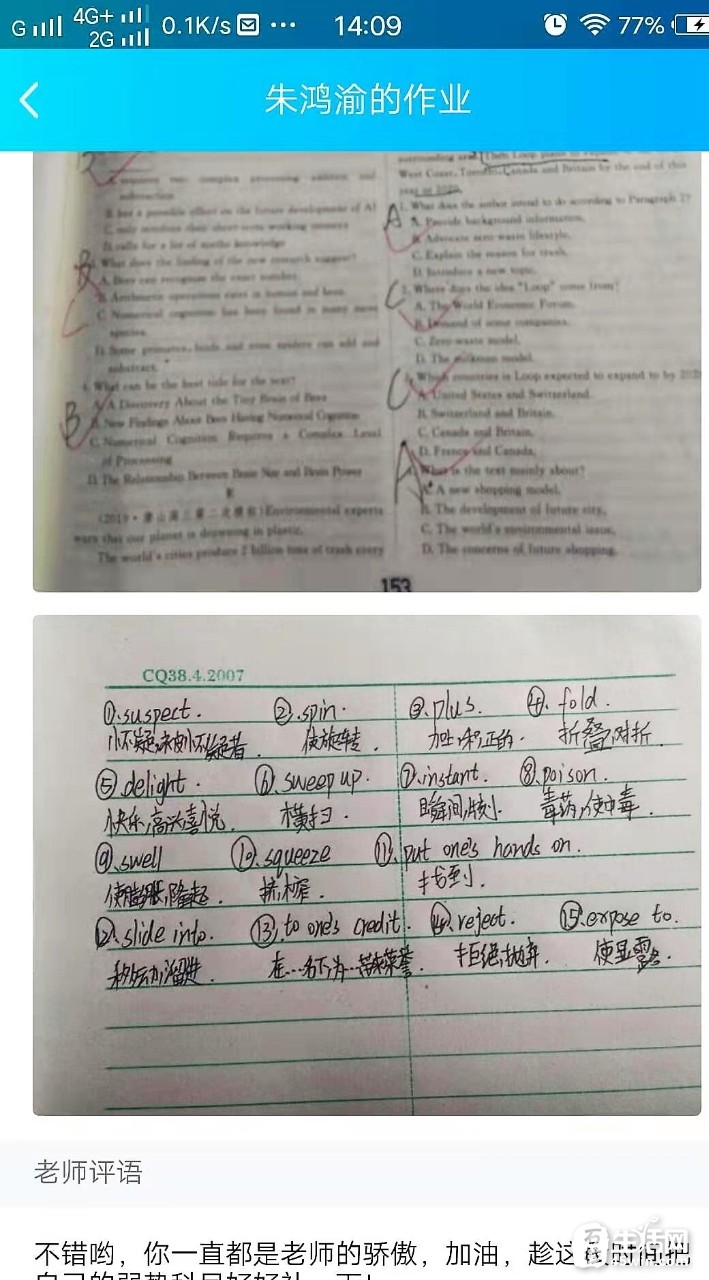 G 4G+ 2G 0.1K/s 14:09 77%
朱鸿渝的作业
subtraction.
B. has a possible effect on the future development of AI
C. only involves their short-term working memory
D. calls for a lot of maths knowledge
What does the finding of the new research suggest?
A. Bees can recognize the exact number.
B. Arithmetic operations exist in human and bees.
C. Numerical cognition has been found in many more
species.
D. Some primates, birds and even spiders can add and
subtract.
4. What can be the best title for the text?
A. A Discovery About the Tiny Brain of Bees
B. New Findings About Bees Having Numerical Cognition
C. Numerical Cognition Requires a Complex Level
of Processing
D. The Relationship Between Brain Size and Brain Power
B
C
B
E
Environmental experts
warn that our planet is drowning in plastic.
The world's cities produce 2 billion tons of trash every
West Coast, Toronto, Canada and Britain by the end of this
year or 2020.
1. What does the author intend to do according to Paragraph 1?
A. Provide background information.
B. Advocate zero-waste lifestyle.
C. Explain the reason for trash.
D. Introduce a new topic.
2. Where does the idea "Loop" come from?
A. The World Economic Forum.
B. Demand of some companies.
C. Zero-waste model.
D. The milkman model.
3. Which countries is Loop expected to expand to by 2020
A. United States and Switzerland.
B. Switzerland and Britain.
C. Canada and Britain.
D. France and Canada.
What is the text mainly about?
A. A new shopping model.
B. The development of future city.
C. The world's environmental issue.
D. The concerns of future shopping.
A
C
C
A
153
CQ38.4.2007
①.suspect. ②.spin. ③.plus. ④.fold.
使旋转. 加上,和,正的. 折叠,对折.
⑤.delight. ⑥.sweep up. ⑦.instant. ⑧.poison.
快乐,高兴,喜悦. 横扫. 瞬间,片刻. 毒药,使中毒.
⑨.swell ⑩.squeeze ⑪.put one's hands on.
使膨胀,隆起. 挤,榨. 找到.
⑫.slide into. ⑬.to one's credit. ⑭.reject. ⑮.expose to.
移动,溜进. 在…名下,为…带来荣誉. 拒绝,抛弃. 使显露.
老师评语
不错哟，你一直都是老师的骄傲，加油，趁这段时间把
自己的弱势科目好好补一下！
生活网